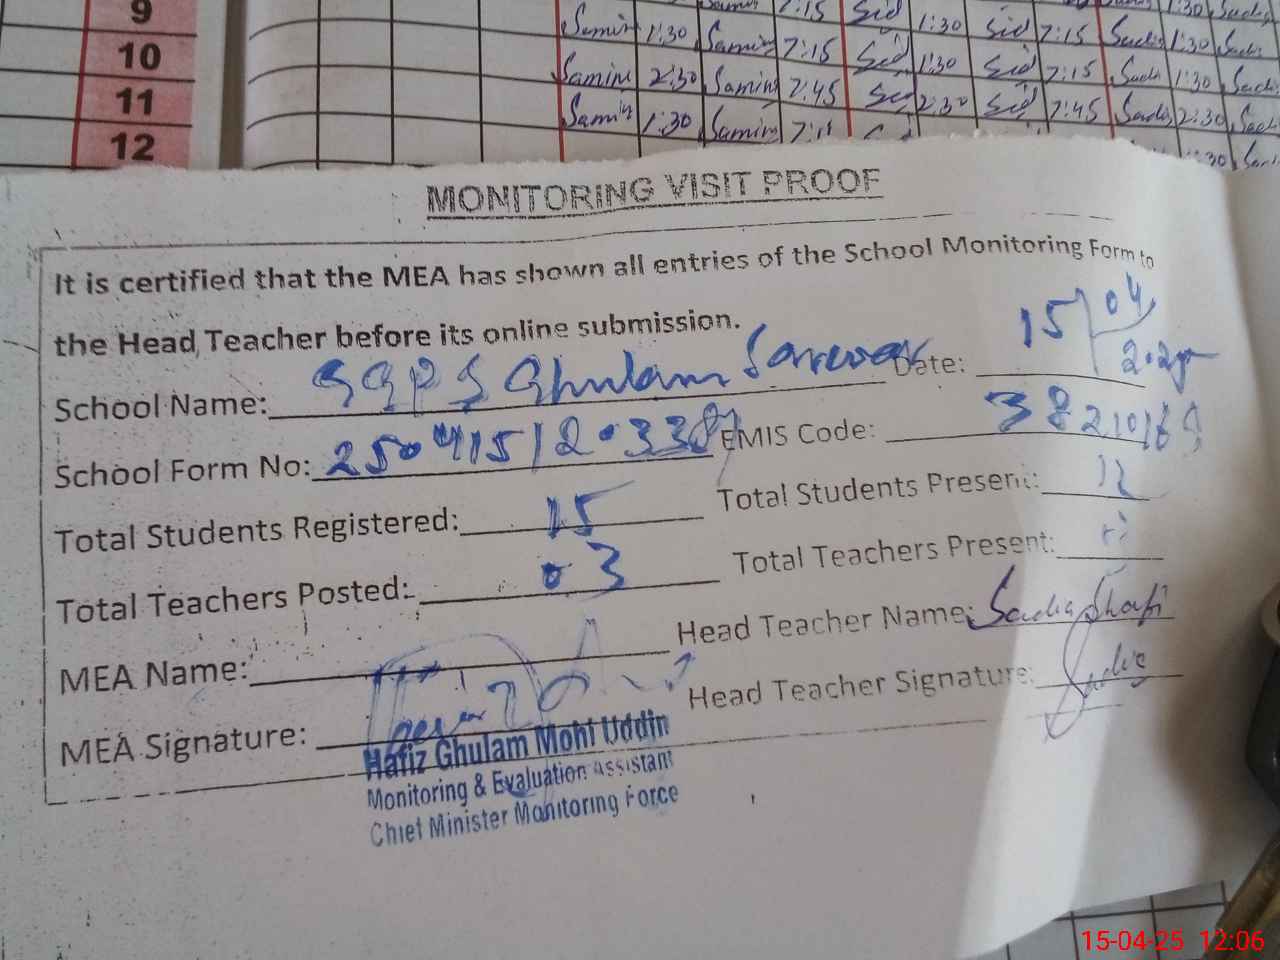 9 Samin 1:30 Samin 7:15 Sid 1:30 Sid 7:15 Sadia 1:30 Sadi
10 Samin 2:30 Samin 7:45 Sid 1:30 Sid 7:15 Sadi 1:30 Sadi
11 Samin 1:30 Samin Sid 2:30 Sid 7:45 Sadi 2:30 Sadi
12
MONITORING VISIT PROOF
It is certified that the MEA has shown all entries of the School Monitoring Form to
the Head Teacher before its online submission.
School Name: GGPS Ghulam Sarwar Date: 15/04
School Form No: EMIS Code:
Total Students Registered: 15 Total Students Present: 12
Total Teachers Posted: 03 Total Teachers Present:
MEA Name: Head Teacher Name: Sadia Shafi
MEA Signature: Head Teacher Signature: Sadia
Hafiz Ghulam Mohi Uddin
Monitoring & Evaluation Assistant
Chief Minister Monitoring Force
15-04-25 12:06